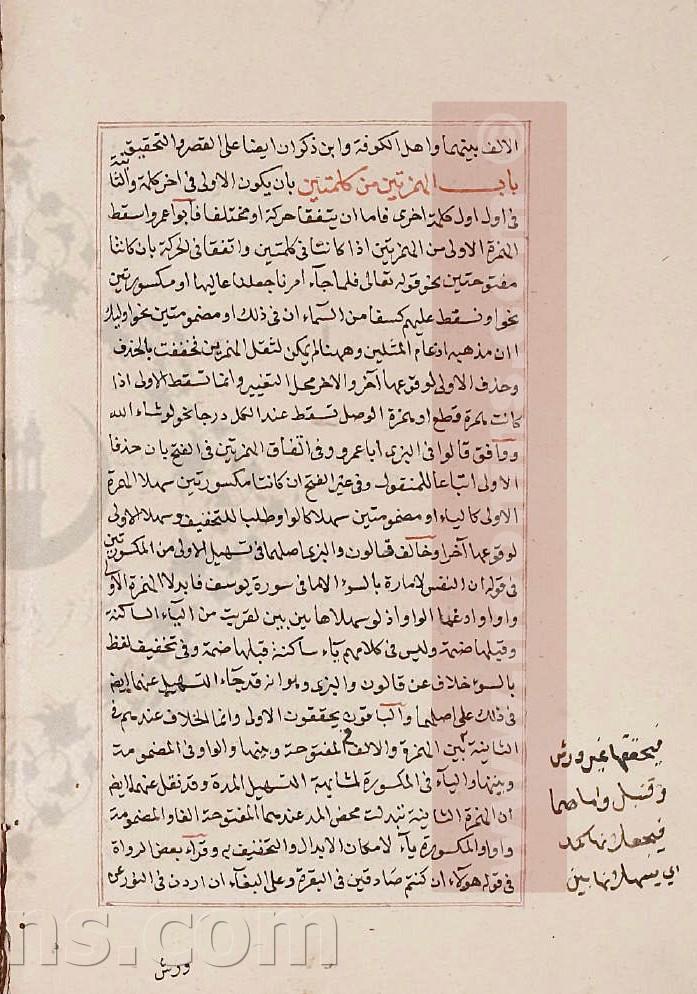 الالف بينهما واهل الكوفة وابن ذكوان ايضا على القصر والتحقيق
باب الهمزتين من كلمتين بان يكون الاولى فى اخر كلمة والثانية
فى اول كلمة اخرى فاما ان يتفقا حركة او مختلفا فابو عمرو اسقط
الهمزة الاولى من الهمزتين اذا كانتا فى كلمتين واتفقا فى الحركة بان كانتا
مفتوحتين نحو قوله تعالى فلما جآء امرنا جعلنا عاليها او مكسورتين
نحو او نسقط عليهم كسفا من السمآء ان فى ذلك او مضمومتين نحو اوليآء
اولئك ان مذهبه ادغام المثلين وههنا لم يمكن لثقل الهمزتين فخففت بالحذف
وحذف الاولى لوقوعها آخر والاخر محل التغيير وانما تسقط الاولى اذا
كانت همزة قطع او همزة الوصل تسقط عند الكل درجا نحو لو شاء الله
ووافق قالون البزى ابا عمرو فى اتفاق الهمزتين فى الفتح بان حذفا
الاولى اتباعا للمنقول وفى غير الفتح ان كانتا مكسورتين سهلا الهمزة
الاولى كاليآء او مضمومتين سهلا كالواو طلبا للتخفيف وسهلا الاولى
لوقوعها آخرا وخالف قالون والبزى اصلهما فى تسهيل الاولى من المكسورتين
فى قوله ان النفس لامارة بالسوء الا ما فى سورة يوسف فابدلا الهمزة الاولى
واوا وادغما الواو اذ لو سهلاها بين بين لقربت من اليآء الساكنة
وقبلها ضمة وليس فى كلامهم يآء ساكنة قبلها ضمة وفى تخفيف لفظ
بالسوء خلاف عن قالون والبزى وهو انه قد جآء التسهيل عنهما ايضا
فى ذلك على اصلهما والباقون يحققون الاولى وانما الخلاف عندهم فى
الثانية بين الهمزة والالف فى المفتوحة وبينها والواو فى المضمومة
وبينها واليآء فى المكسورة لمشابهة التسهيل المدة وقد نقل عنهما ايضا
ان الهمزة الثانية تبدلت محض المد عندهما المفتوحة الفا والمضمومة
واوا والمكسورة يآء لامكان الابدال والتخفيف به وقرآء بعض الرواة
فى قوله هؤلآء ان كنتم صادقين فى البقرة وعلى البغآء ان اردن فى النور عن
فيحققها غير ورش
وقنبل واما هما
فيجعلانها كمد
اى يسهلانها بين
ورش
ns.com